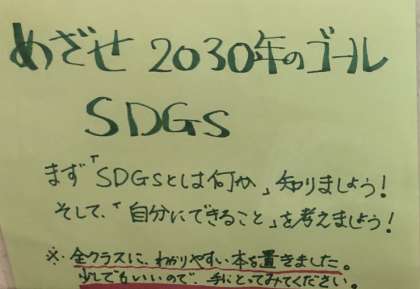 めざせ 2030年のゴール
SDGs
まず「SDGsとは何か」知りましょう!
そして、「自分にできること」を考えましょう!
※ 全クラスに、わかりやすい本を置きました。
少しでもいいので、手にとってみてください。